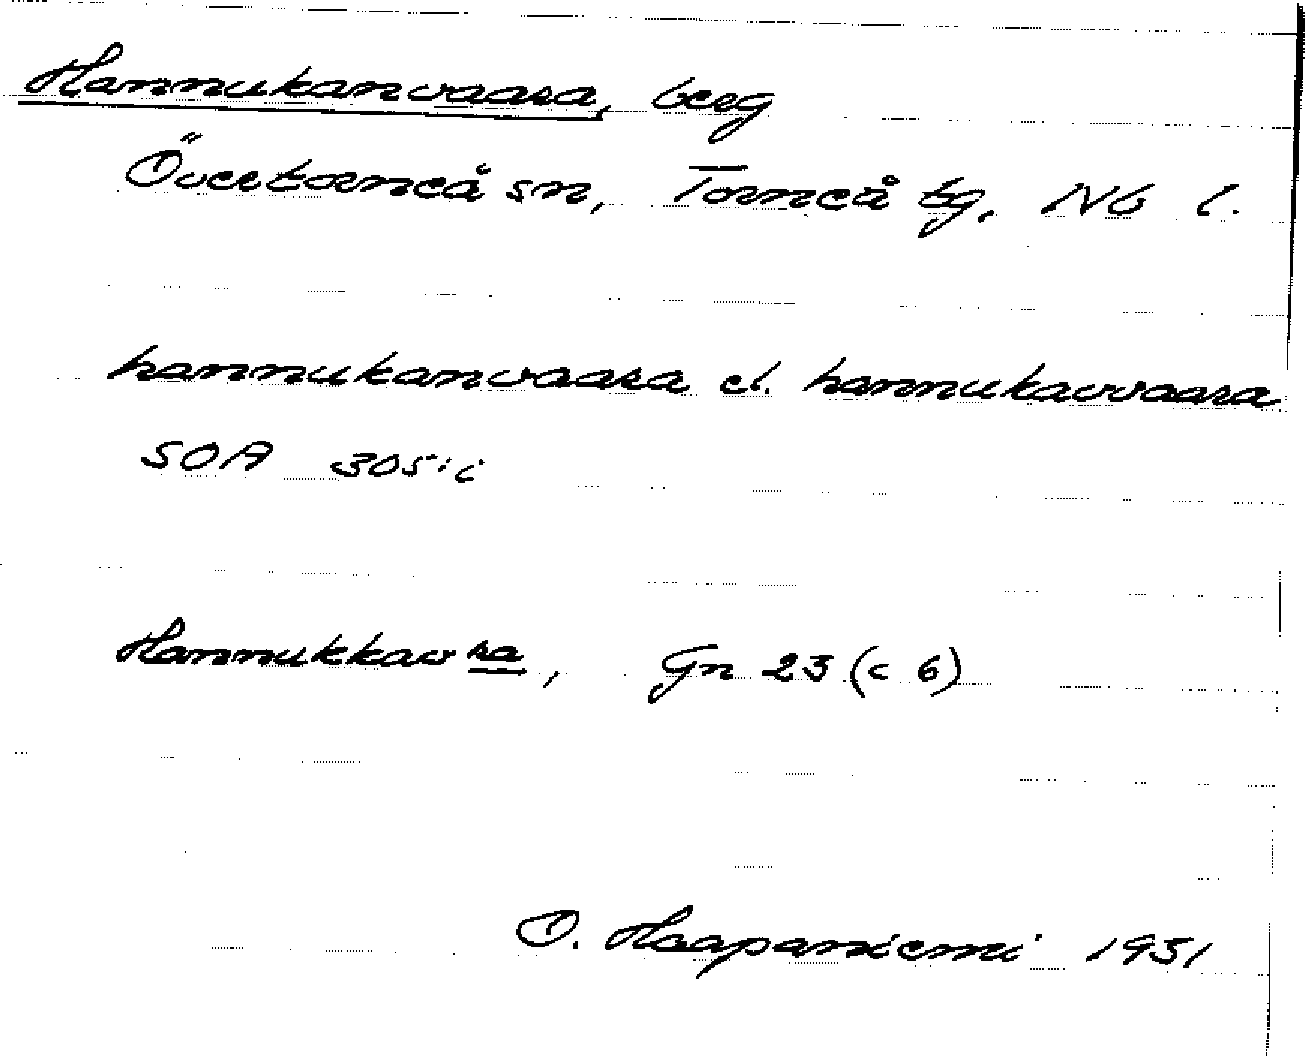 Hannukanvaara, berg
Övertorneå sn, Torneå tg, Nb l.
hannukanvaara el. hannukavvaara
SOA 305:i
Hannukkav ra, Gn 23 (c 6)
O. Haapaniemi 1951